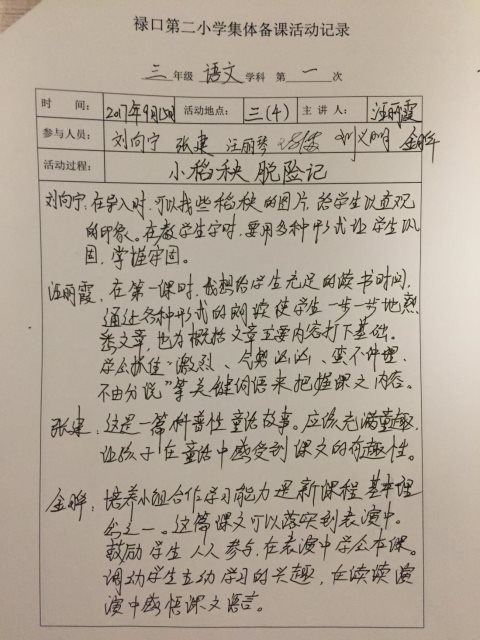 禄口第二小学集体备课活动记录
三 年级 语文 学科 第 一 次
时 间： 2017年9月15日 活动地点： 三(4) 主 讲 人： 汪丽霞
参与人员： 刘向宁 张建 汪丽琴 刘义明 金晔
活动过程： 小稻秧脱险记
刘向宁：在导入时，可以找些稻秧的图片，给学生以直观
的印象。在教学生字时，要用多种形式让学生巩
固，掌握牢固。
汪丽霞：在第一课时，我想给学生充足的读书时间，
通过各种形式的朗读使学生一步一步地熟
悉文章，也为概括文章主要内容打下基础。
学会抓住“激烈、气势汹汹、蛮不讲理、
不由分说”等关键词语来把握课文内容。
张建：这是一篇科普性童话故事。应该充满童趣，
让孩子在童话中感受到课文的有趣性。
金晔：培养小组合作学习能力是新课程基本理
念之一。这篇课文可以落实到表演中。
鼓励学生人人参与，在表演中学会本课。
调动学生主动学习的兴趣，在读读演
演中感悟课文语言。